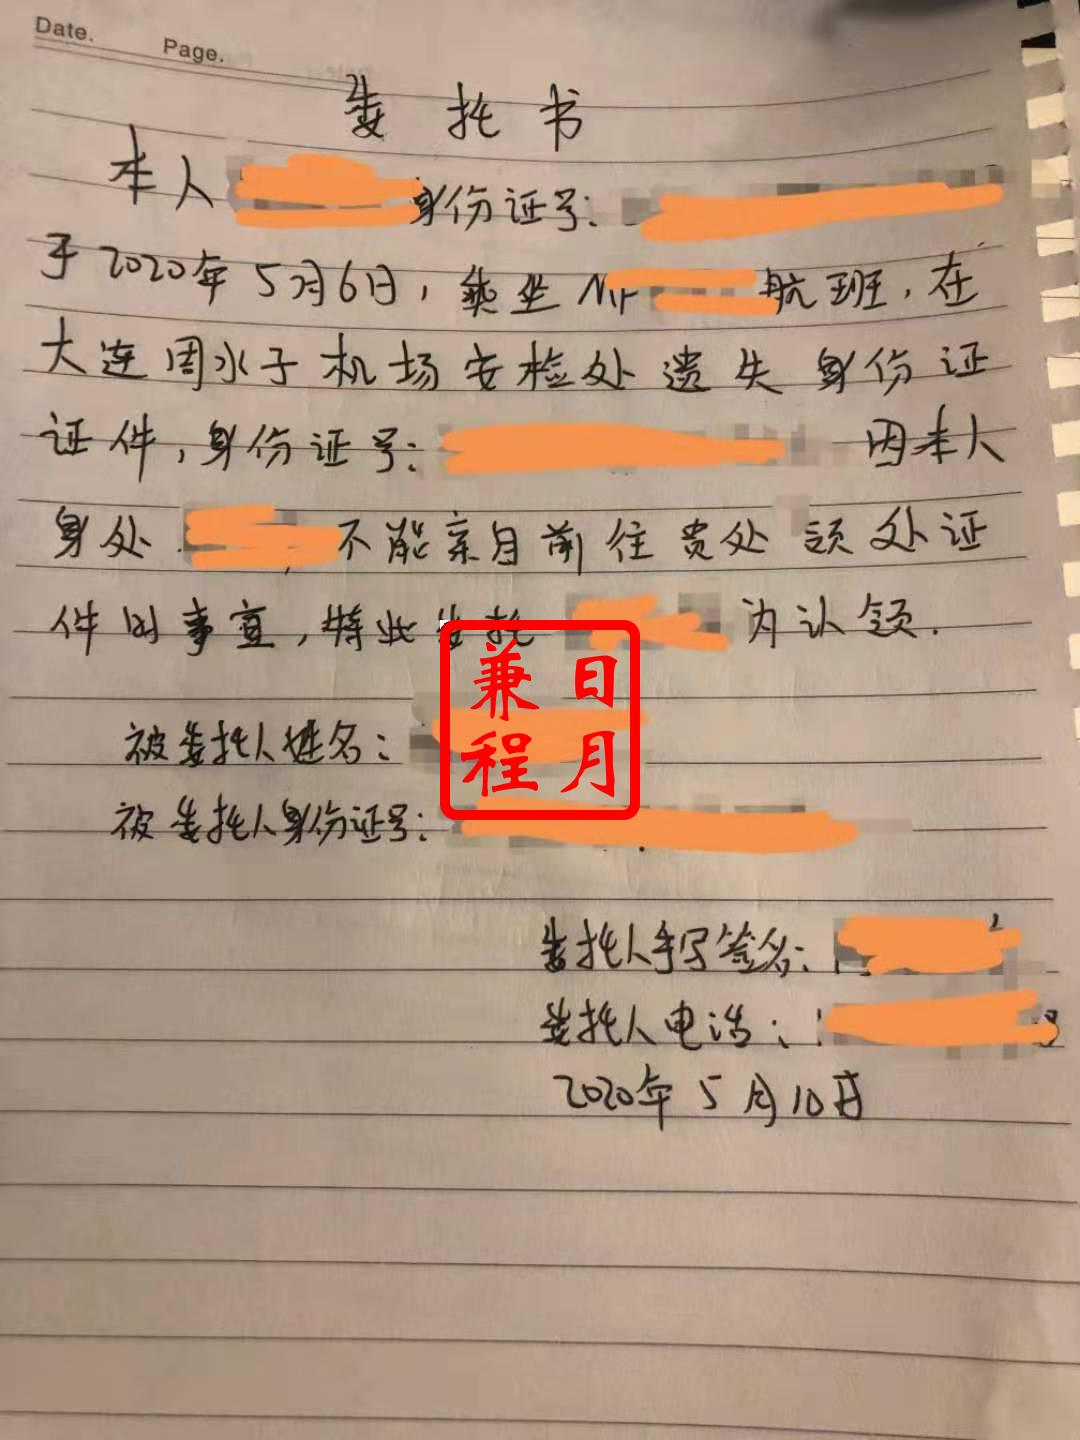 Date. Page.
委托书
本人 身份证号:
于2020年5月6日,乘坐 航班,在
大连周水子机场安检处遗失身份证
证件,身份证号: 因本人
身处 不能亲自前往贵处 领处证
件的事宜,特此委托 为认领.
被委托人姓名:
被委托人身份证号:
委托人手写签名:
委托人电话:
2020年5月10日
兼日
程月